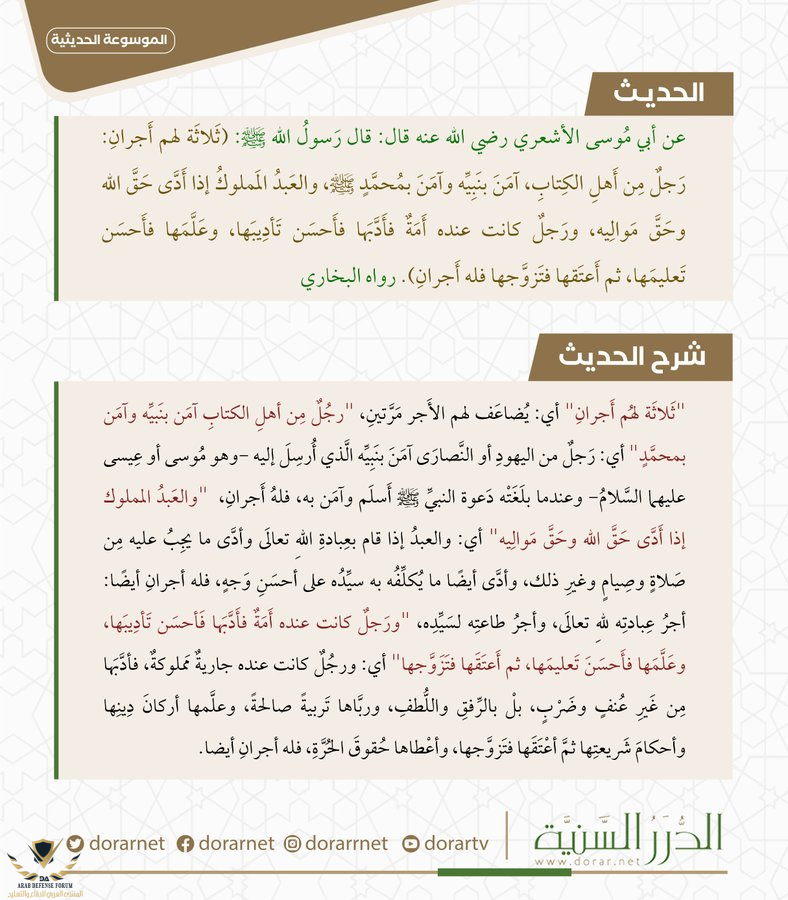 الموسوعة الحديثية
الحديث
عن أبي مُوسى الأشعري رضي الله عنه قال: قال رَسولُ الله ﷺ: (ثَلاثَة لهم أَجرانِ:
رَجلٌ مِن أَهلِ الكِتابِ، آمَنَ بنَبِيِّه وآمَنَ بمُحمَّدٍ ﷺ، والعَبدُ المَملوكُ إذا أَدَّى حَقَّ الله
وحَقَّ مَوالِيه، ورَجلٌ كانت عنده أَمَةٌ فأَدَّبَها فأَحسَن تَأدِيبَها، وعَلَّمَها فأَحسَن
تَعليمَها، ثم أَعتَقها فتَزوَّجها فله أَجرانِ). رواه البخاري
شرح الحديث
"ثَلاثَة لهُم أَجرانِ" أي: يُضاعَف لهم الأَجر مَرَّتينِ، "رجُلٌ مِن أهلِ الكتابِ آمَن بنَبيِّه وآمَن
بمحمَّدٍ" أي: رَجلٌ من اليهودِ أو النَّصارَى آمَنَ بنَبيِّه الَّذي أُرسِلَ إليه –وهو مُوسى أو عِيسى
عليهما السَّلامُ– وعندما بلَغَتْه دَعوة النبيِّ ﷺ أَسلَم وآمَن به، فلهُ أَجرانِ، "والعَبدُ المملوك
إذا أَدَّى حَقَّ الله وحَقَّ مَوالِيه" أي: والعبدُ إذا قام بعِبادةِ اللهِ تعالَى وأدَّى ما يجِبُ عليه مِن
صَلاةٍ وصِيامٍ وغيرِ ذلك، وأدَّى أيضًا ما يُكلِّفُه به سيِّدُه على أحسَنِ وَجهٍ، فله أجرانِ أيضًا:
أجرُ عِبادتِه للهِ تعالَى، وأجرُ طاعتِه لسَيِّدِه، "ورَجلٌ كانت عنده أَمَةٌ فأدَّبَها فَأحسَن تَأدِيبَها،
وعَلَّمَها فأَحسَنَ تَعليمَها، ثم أَعتَقَها فتَزَوَّجها" أي: ورجُلٌ كانت عنده جاريةٌ مَملوكةٌ، فأدَّبَها
مِن غَيرِ عُنفٍ وضَرْبٍ، بلْ بالرِّفقِ واللُّطفِ، وربَّاها تَربيةً صالحةً، وعلَّمها أركانَ دِينِها
وأحكامَ شَريعتِها ثمَّ أعْتَقَها فتَزوَّجها، وأعْطاها حُقوقَ الحُرَّةِ، فله أجرانِ أيضا.
الدُّرَرُ السَّنِيَّة
www.dorar.net
dorarnet dorarnet dorarrnet dorartv
DA
ARAB DEFENSE FORUM
المنتدى العربي للدفاع والتسليح